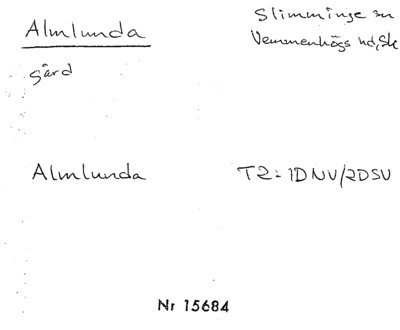 Almlunda
Slimminge sn
Vemmenhögs hd, Sk
gård
Almlunda
T2: 1D NV/2D SV
Nr 15684